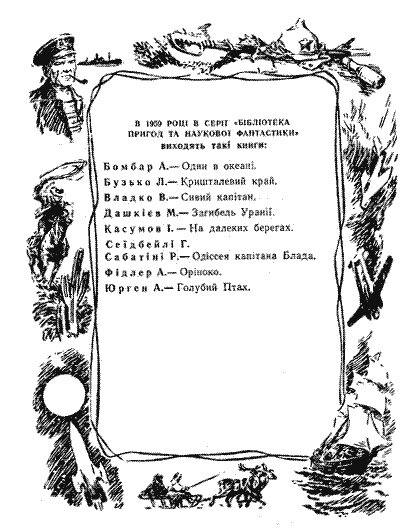 В 1959 РОЦІ В СЕРІЇ «БІБЛІОТЕКА
ПРИГОД ТА НАУКОВОЇ ФАНТАСТИКИ»
ВИХОДЯТЬ ТАКІ КНИГИ:
Бомбар А.— Один в океані.
Бузько Л.— Кришталевий край.
Владко В.— Сивий капітан.
Дашкієв М.— Загибель Уранії.
Касумов І.— На далеких берегах.
Сеїдбейлі Г.
Сабатіні Р.— Одіссея капітана Блада.
Фідлер А.— Оріноко.
Юрген А.— Голубий Птах.